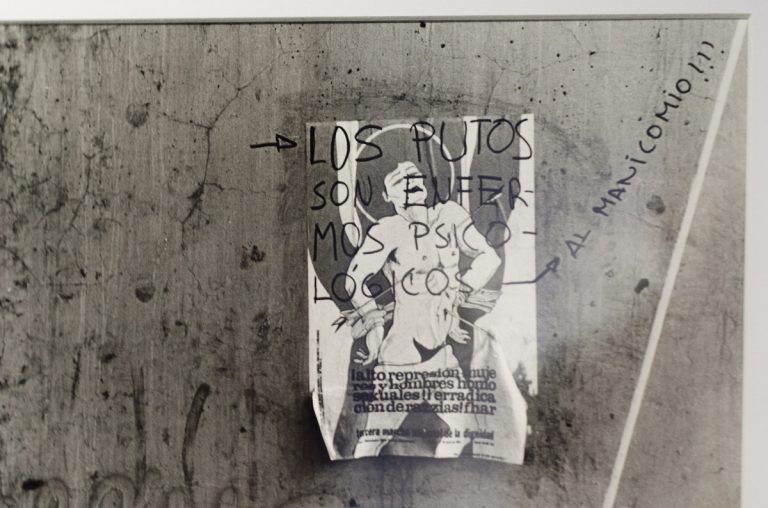 → LOS PUTOS
SON ENFER-
MOS PSICO-
LOGICOS → AL MANICOMIO!!!
¡alto represión muje
res y hombres homo
sexuales! ¡erradica
ción de razzias! fhar
tercera marcha de la dignidad